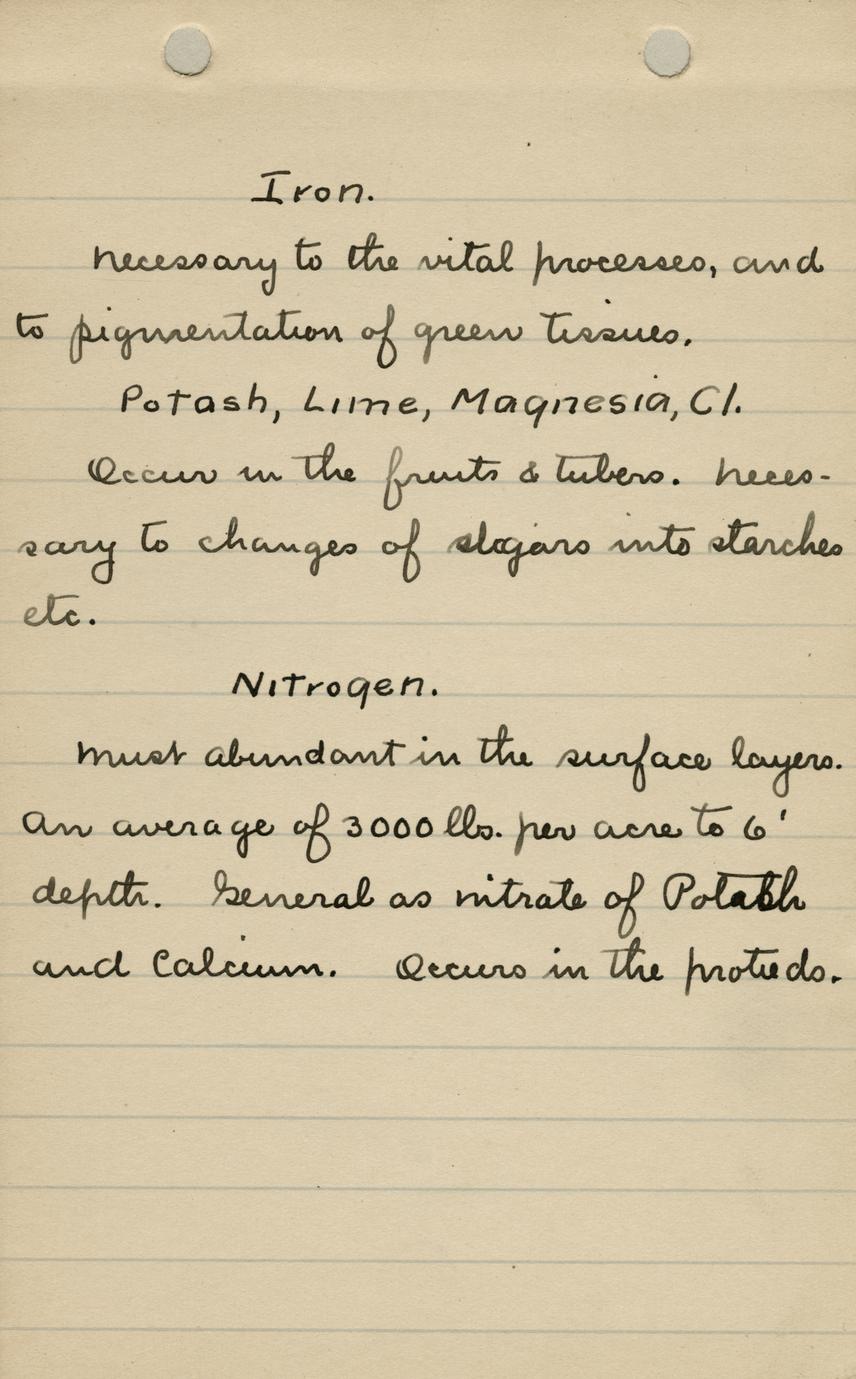 Iron.
Necessary to the vital processes, and
to pigmentation of green tissues.
Potash, Lime, Magnesia, Cl.
Occur in the fruits & tubers. Neces-
sary to changes of sugars into starches
etc.
Nitrogen.
Must abundant in the surface layers.
An average of 3000 lbs. per acre to 6'
depth. General as nitrate of Potash
and Calcium. Occurs in the protieds.